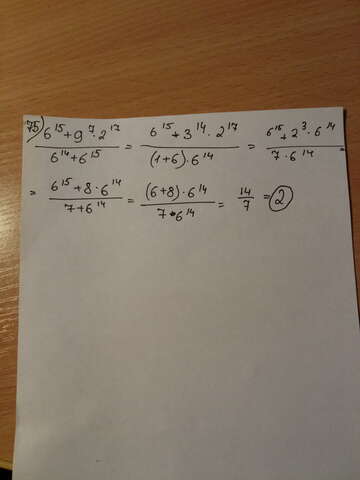 75) \frac{6^{15}+9^{7}·2^{17}}{6^{14}+6^{15}} = \frac{6^{15}+3^{14}·2^{17}}{(1+6)·6^{14}} = \frac{6^{15}+2^{3}·6^{14}}{7·6^{14}} =
= \frac{6^{15}+8·6^{14}}{7+6^{14}} = \frac{(6+8)·6^{14}}{7·6^{14}} = \frac{14}{7} = 2